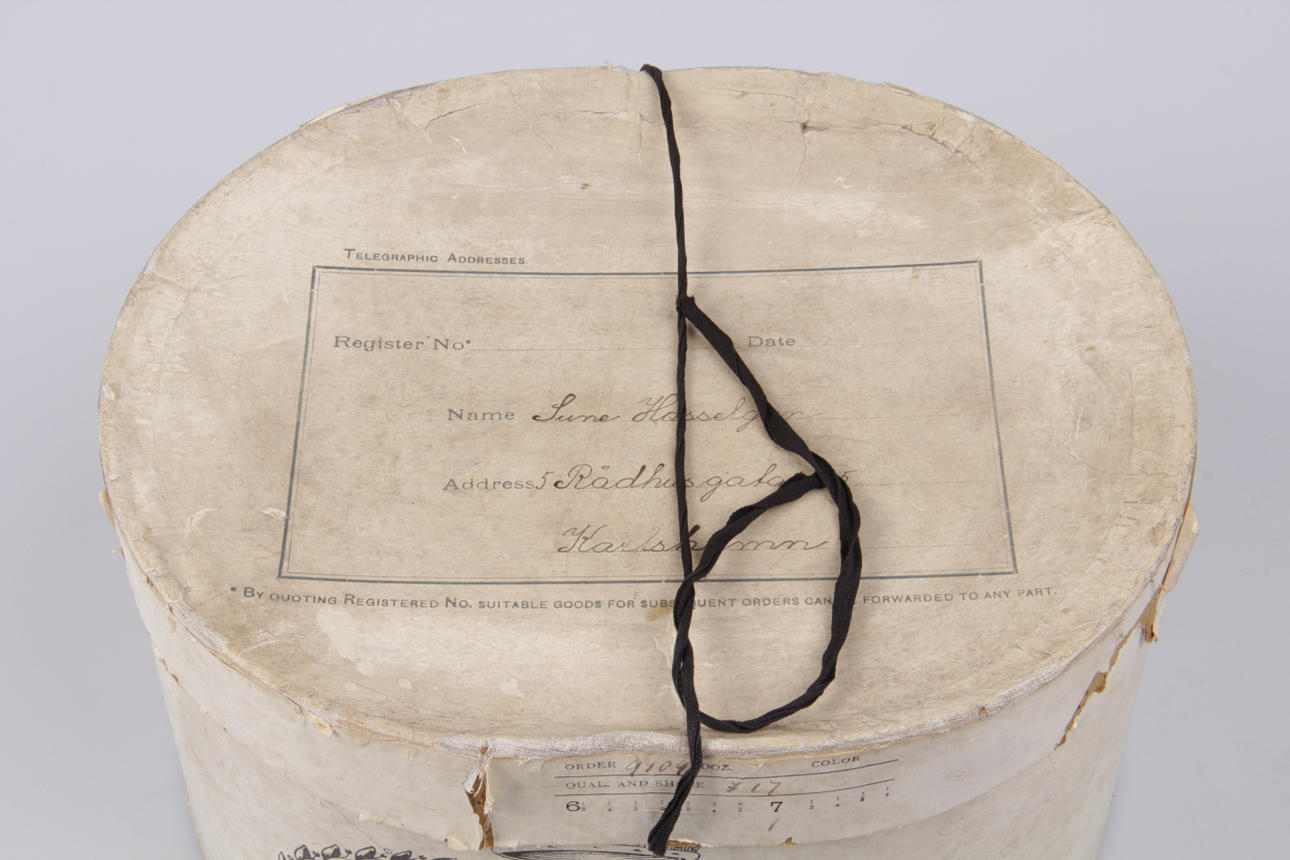 TELEGRAPHIC ADDRESSES
Register No• Date
Name Sune Hasselgren
Address 5 Rådhusgatan 5
Karlshamn
* BY QUOTING REGISTERED NO. SUITABLE GOODS FOR SUBSEQUENT ORDERS CAN BE FORWARDED TO ANY PART.
ORDER 9109 DOZ. COLOR
QUAL. AND SHAPE 17
6 7